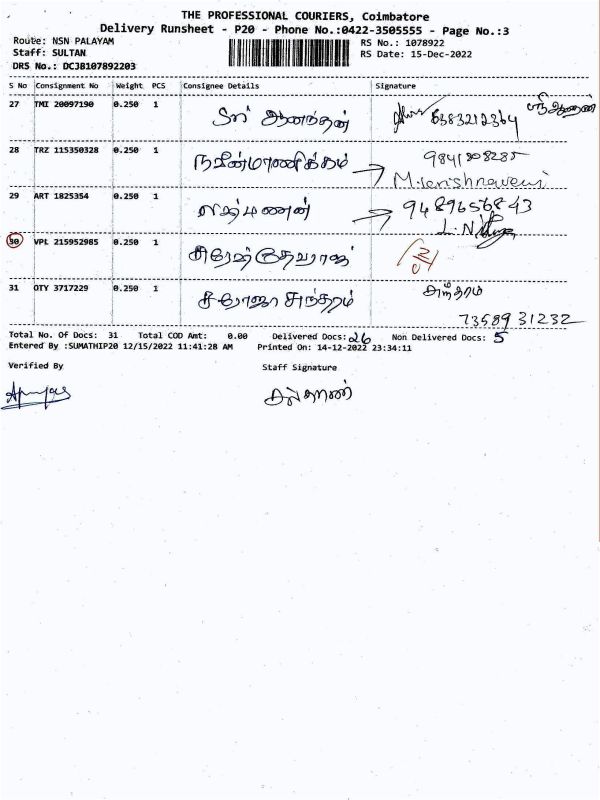 THE PROFESSIONAL COURIERS, Coimbatore
Delivery Runsheet - P20 - Phone No.:0422-3505555 - Page No.:3
Route: NSN PALAYAM
RS No.: 1078922
Staff: SULTAN
RS Date: 15-Dec-2022
DRS No.: DCJB107892203
S No Consignment No Weight PCS Consignee Details Signature
27 TMI 20097190 0.250 1 ஸ்ரீ ஆனந்தன் 6383212364
28 TRZ 115350328 0.250 1 நவீன்மாணிக்கம் 9841808285
M.
29 ART 1825354 0.250 1 லஷ்மணன் 9489656843
L.N
30 VPL 215952985 0.250 1 சுரேஷ்தேவராஜ்
31 OTY 3717229 0.250 1 சரோஜா சுந்தரம் சுந்தரம்
7358931232
Total No. Of Docs: 31 Total COD Amt: 0.00 Delivered Docs: 26 Non Delivered Docs: 5
Entered By :SUMATHIP20 12/15/2022 11:41:28 AM Printed On: 14-12-2022 23:34:11
Verified By Staff Signature
சுல்தான்